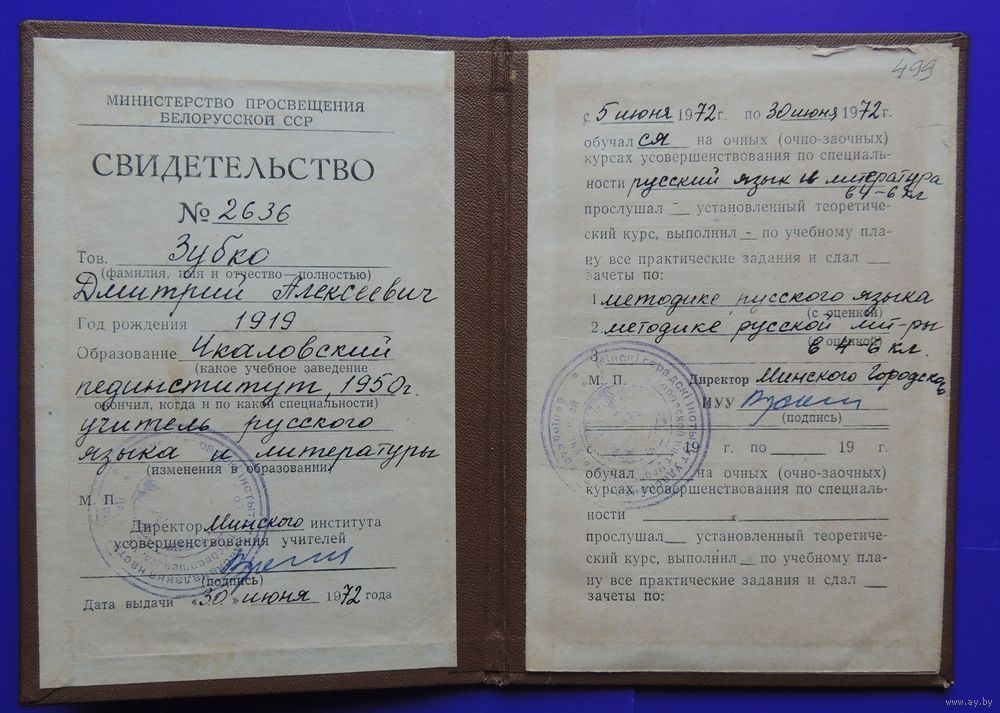 МИНИСТЕРСТВО ПРОСВЕЩЕНИЯ
БЕЛОРУССКОЙ ССР
СВИДЕТЕЛЬСТВО
№ 2636
Тов. Зубко
(фамилия, имя и отчество—полностью)
Дмитрий Алексеевич
Год рождения 1919
Образование Чкаловский
(какое учебное заведение
пединститут, 1950г.
окончил, когда и по какой специальности)
учитель русского
языка и литературы
(изменения в образовании)
М. П.
Директор Минского института
усовершенствования учителей
(подпись)
Дата выдачи «30» июня 1972 года
499
с 5 июня 1972 г. по 30 июня 1972 г.
обучался на очных (очно-заочных)
курсах усовершенствования по специаль-
ности русский язык и литература
в 4-6 кл
прослушал — установленный теоретиче-
ский курс, выполнил - по учебному пла-
ну все практические задания и сдал
зачеты по:
1. методике русского языка
(с оценкой)
2. методике русской лит-ры
(с оценкой)
3. в 4-6 кл.
М. П. Директор Минского Городского
ИУУ
(подпись)
19 г. по 19 г.
обучал на очных (очно-заочных)
курсах усовершенствования по специаль-
ности
прослушал установленный теоретиче-
ский курс, выполнил по учебному пла-
ну все практические задания и сдал
зачеты по:
www.ay.by